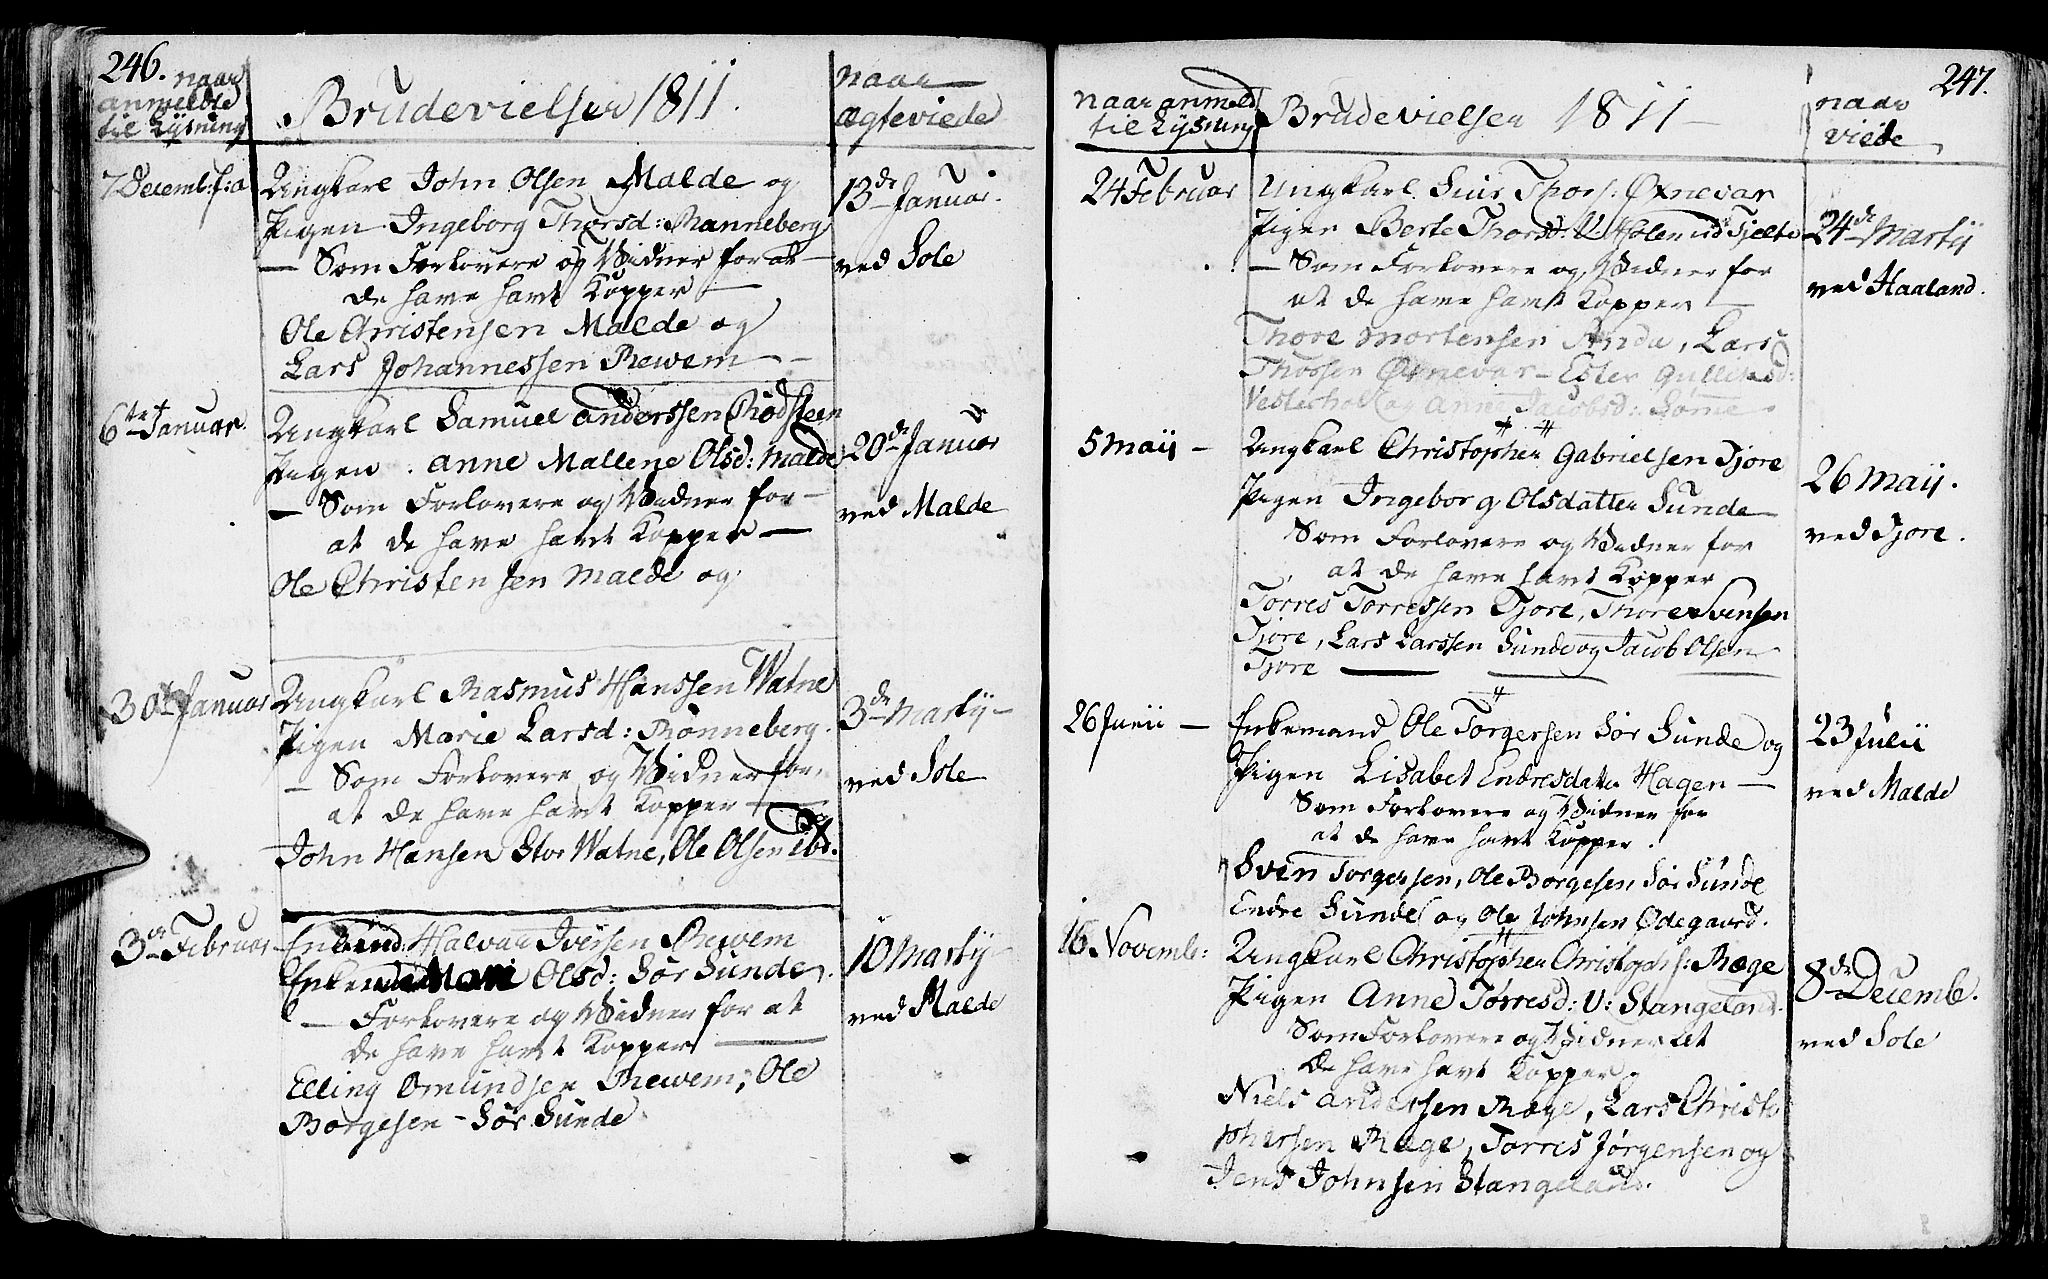 246.
naar
anmeldte
til Lysning
Brudevielser 1811.
naar
ægteviede
7 Decemb: f: a
Ungkarl John Olsen Malde og
Pigen Ingeborg Thorsd: Rønneberg
— Som Forlovere og Vidner for at —
de have havt Kopper —
Ole Christensen Malde og
Lars Johannessen Rewem —
13de Januar.
ved Sole
6te Januar.
Ungkarl Samuel Anderssen Rødsteen
Pigen . Anne Mallene Olsd: Malde
— Som Forlovere og Vidner for —
at de have havt Kopper —
Ole Christensen Malde og
20de Januar
ved Malde
30te Januar
Ungkarl Rasmus Hanssen Watne
Pigen Marie Larsd: Rønneberg.
— Som Forlovere og Vidner for
at de have havt Kopper —
John Hansen Stor Watne, Ole Olsen ibd.
3de Martij —
ved Sole
3de Februar
Enkemd: Halvar Iversen Rewem
Enken Mari Olsd: Sør Sunde.
— Forlovere og Vidner for at
de have havt Kopper —
Elling Omundsen Rewem, Ole
Borgesen — Sør Sunde
10 Martij —
ved Malde
247.
naar anmeld
til Lysning
Brudevielser 1811 —
naar
viede
24 Februar
Ungkarl Thors: Øxnevar
Pigen Berte Thorsd: V. Holen ud Tjelte
— Som Forlovere og Vidner for
at de have havt Kopper —
Thore Mortensen Anda, Lars
Thossen Øxnevar — Ester Gulliksd:
Vesterhol og Anne Jacobsd: Sømme
24de Martij
ved Haaland.
5 Maij —
Ungkarl Christopher Gabrielsen Tjore
Pigen Ingeborg Olsdatter Sunde
Som Forlovere og Vidner for
at de have havt Kopper
Torres Torressen Tjore, Thore Svensen
Tjore, Lars Larssen Sunde og Jacob Olsen
Tjore —
26 Maij.
ved Tjore.
26 Junii —
Enkemand Ole Torgersen Sør Sunde og
Pigen Lisabet Endresdatter Hagen —
Som Forlovere og Vidner for
at de have havt Kopper.
Sven Torgersen, Ole Borgesen Sør Sunde
Endre Sunde og Ole Johnsen Ødegaard.
23 Julii
ved Malde
16 Novemb:
Ungkarl Christopher Christophs: Ræge
Pigen Anne Torresd: V: Stangeland.
Som Forlovere og Vidner at
De have havt Kopper.
Niels Andersen Ræge, Lars Christo
phersen Ræge, Torres Jørgensen og
Jens Johnsen Stangeland.
8de Decemb.
ved Sole